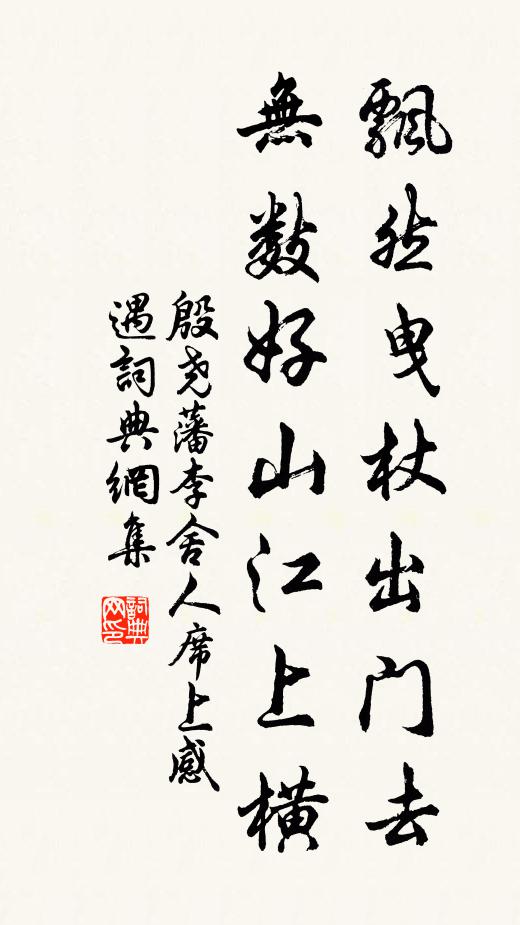 飄然曳杖出門去
無數好山江上橫
殷尧藩李舍人席上感
遇詞典網集
詞典
网印